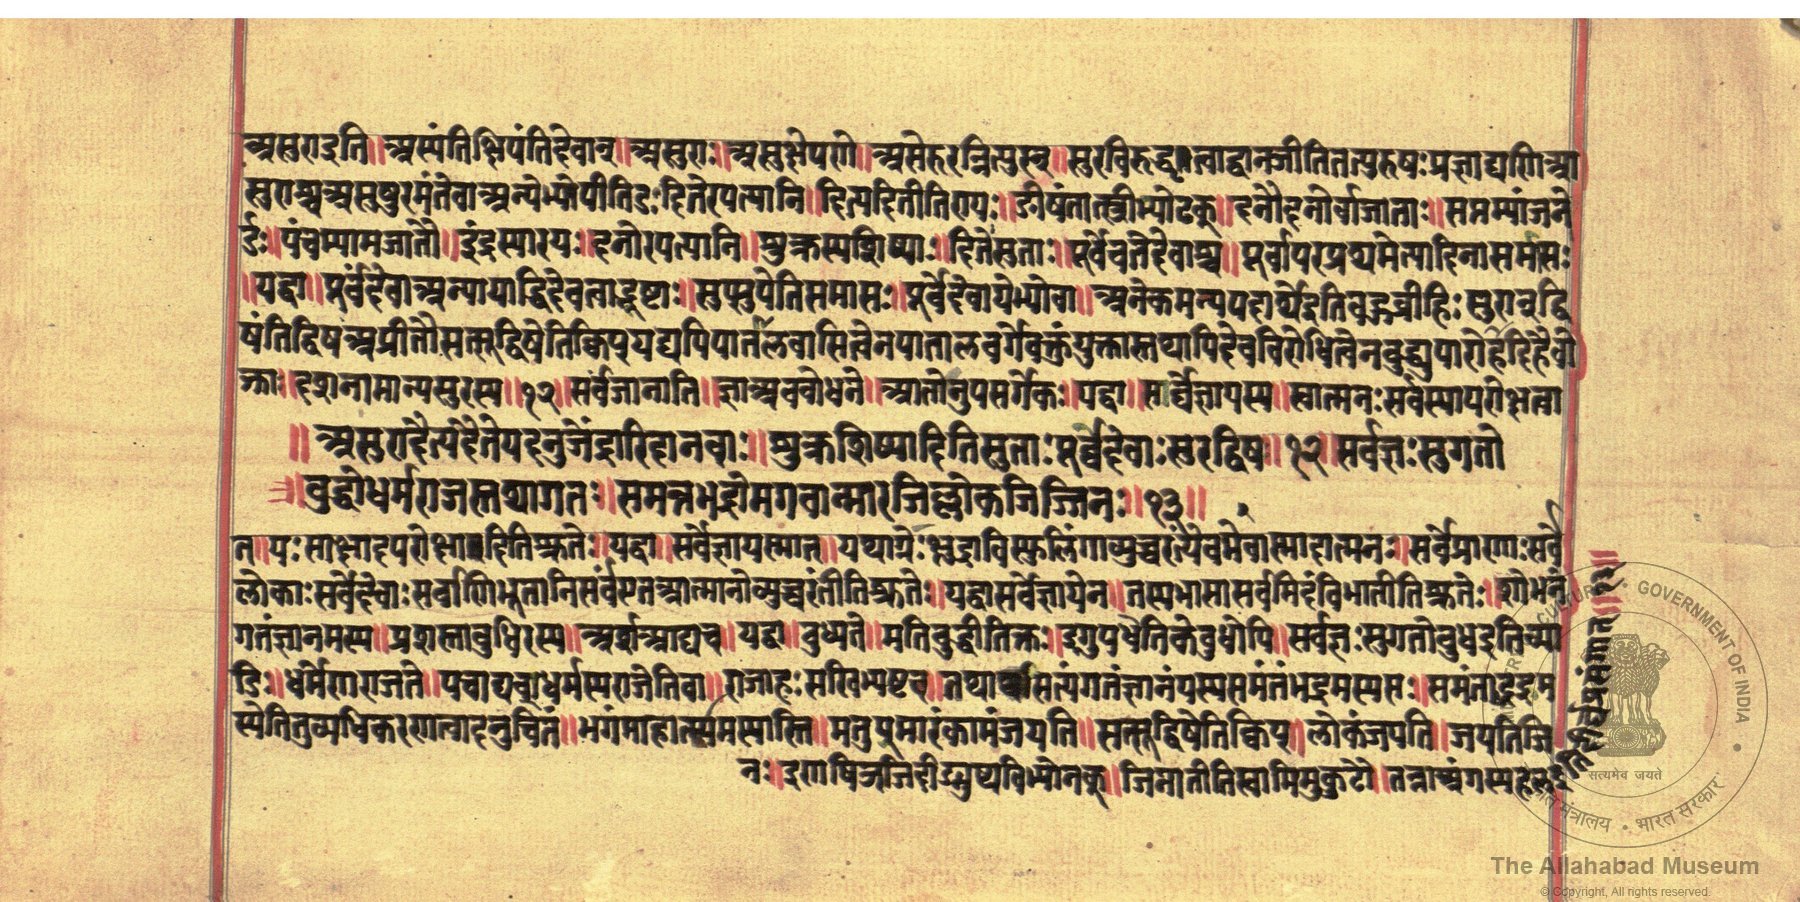 असुराइति॥अस्यंतिक्षिपंतिदेवान्॥असुराः॥असुक्षेपणे॥असेरुरन्नित्युरन्॥सुरविरुद्धत्वाद्वानञीतितत्पुरुषःप्रज्ञाद्यणिआ
सुराश्चअसुषुरमंतेवाअन्येभ्योपीतिडःदितेरपत्यानि॥दित्यदितीतिण्यः॥ङीषंतात्स्त्रीभ्योढक्॥दनौदनोर्वाजाताः॥सप्तम्यांजने
र्डः॥पंचम्यामजातौ॥इंद्रस्यारयः॥दनोरपत्यानि॥शुक्रस्यशिष्याः॥दितेःसुताः॥पूर्वेचतेदेवाश्च॥पूर्वापरप्रथमेत्यादिनासमासः
॥यद्वा॥पूर्वंदेवाअन्यायाद्धिदेवत्वाद्भ्रष्टाः॥सुप्सुपेतिसमासः॥पूर्वेदेवायेभ्योवा॥अनेकमन्यपदार्थेइतिबहुव्रीहिः॥सुरान्द्वि
षंतिद्विषअप्रीतौसत्सूद्विषेतिक्विप्यद्यपिपातालवासित्वेनपातालवर्गेवक्तुंयुक्तास्तथापिदेवविरोधित्वेनबुद्ध्युपारोहादिहैवो
क्ताः॥दशनामान्यसुरस्य॥१२॥सर्वंजानाति॥ज्ञाअवबोधने॥आतोनुपसर्गेकः॥यद्वा॥सार्वेज्ञायस्य॥स्वात्मनःसर्वस्यापरोक्षत्वा
॥असुरादैत्यदैतेयदनुजेंद्रारिदानवाः॥शुक्रशिष्यादितिसुताःपूर्वदेवाःसुरद्विषः॥१२॥सर्वज्ञःसुगतो
॥बुद्धोधर्मराजस्तथागतः॥समन्तभद्रोभगवान्मारजिल्लोकजिज्जिनः॥१३॥
त्॥यःसाक्षादपरोक्षादितिश्रुतेः॥यद्वा॥सर्वेज्ञायस्मात्॥यथाग्नेःक्षुद्राविस्फुलिंगाव्युच्चरंत्येवमेवास्मादात्मनः॥सर्वेप्राणाःसर्वे
लोकाःसर्वेदेवाःसर्वाणिभूतानिसर्वएतआत्मानोव्युच्चरंतीतिश्रुतेः॥यद्वासर्वेज्ञायेन॥तस्यभासासर्वमिदंविभातीतिश्रुतेः॥शोभनं
गतंज्ञानमस्य॥प्रशस्ताबुधिरस्य॥अर्शआद्यच्॥यद्वा॥बुध्यते॥मतिबुद्धीतिक्तः॥इगुपधेतिकेबुधोपि॥सर्वज्ञःसुगतोबुधइतिव्या
डिः॥धर्मेणराजते॥पचाद्यच्॥धर्मस्यराजेतिवा॥राजाहःसखिभ्यष्टच्॥तथासत्यंगतंज्ञानंयस्यसमंतंभद्रमस्यसः॥समंताद्भद्रम
स्येतितुव्यधिकरणत्वादनुचितं॥भगंमाहात्म्यमस्यास्ति॥मतुप्॥मारंकामंजयति॥सत्सूद्विषेतिक्विप्॥लोकंजयति॥जयतिजि
नः॥इणषिञ्जिदीङुष्यविभ्योनक्॥जिनातीतिस्वामिमुकुटो॥तन्नाअंगस्यहल
इतिदीर्घप्रसंगात्॥
MINISTRY OF CULTURE • GOVERNMENT OF INDIA
सत्यमेव जयते
मंत्रालय • भारत सरकार
The Allahabad Museum
© Copyright, All rights reserved.